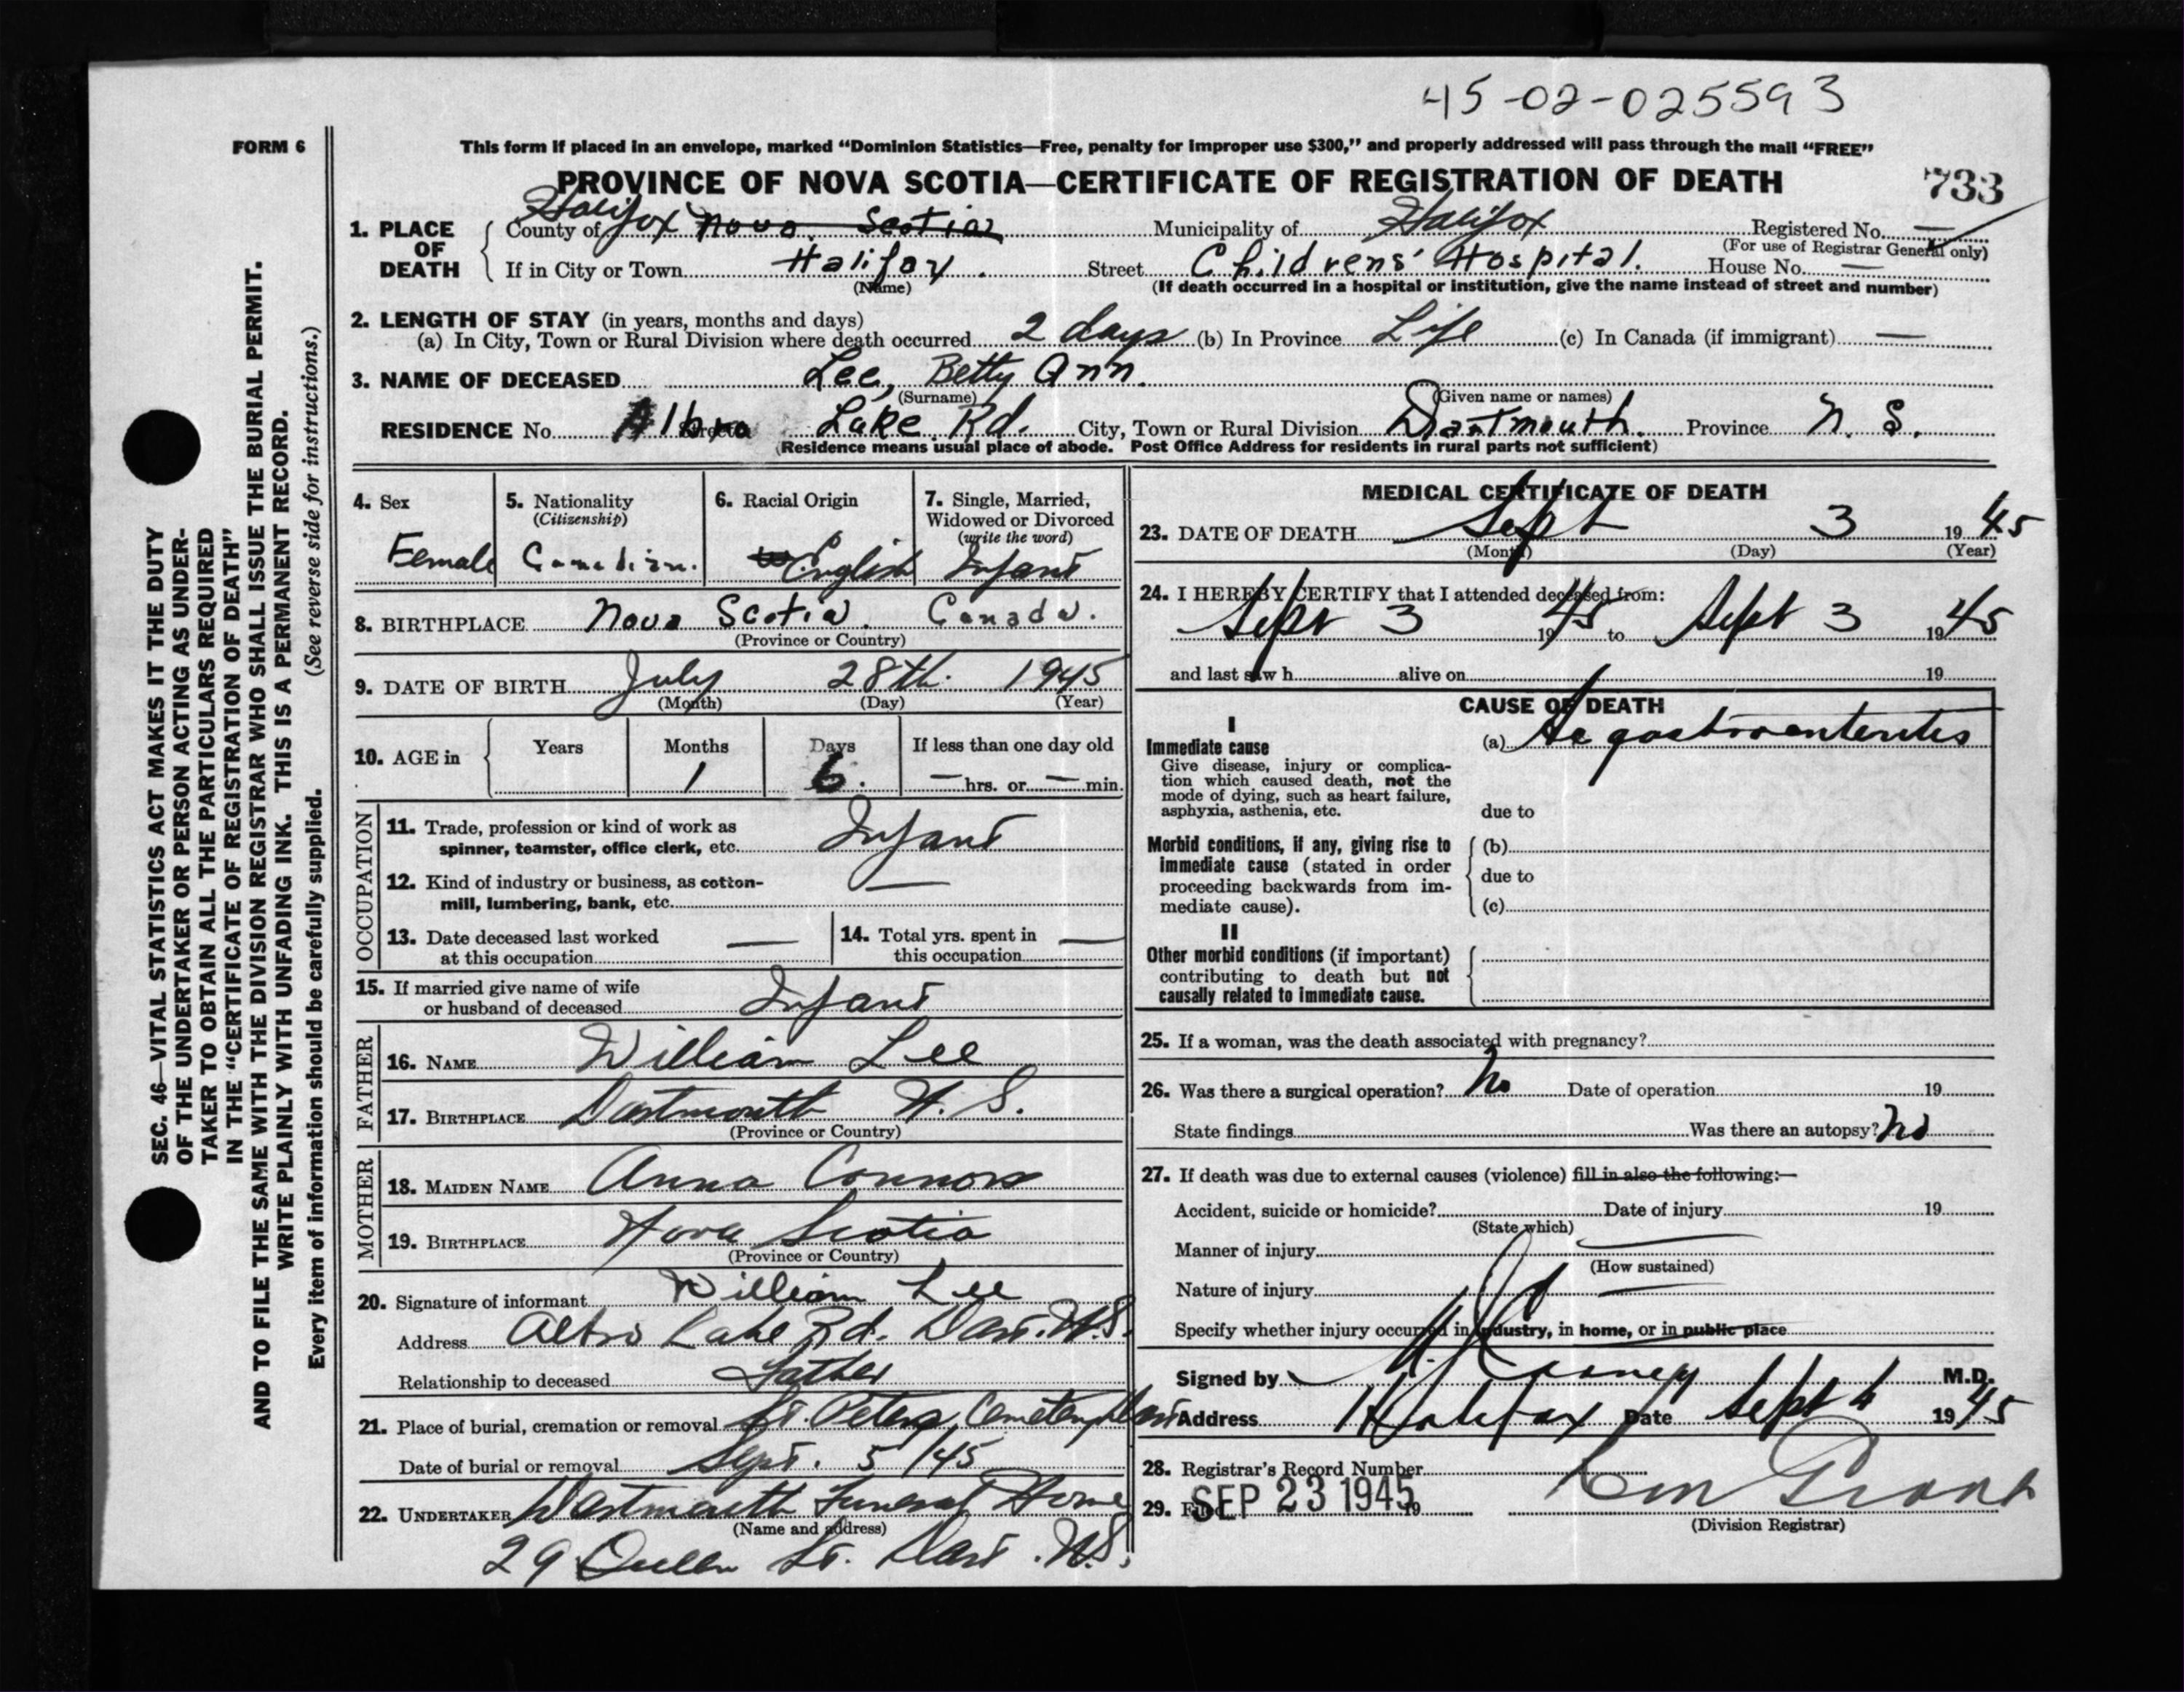 45-02-025593
FORM 6
This form if placed in an envelope, marked “Dominion Statistics—Free, penalty for improper use $300,” and properly addressed will pass through the mail “FREE”
PROVINCE OF NOVA SCOTIA—CERTIFICATE OF REGISTRATION OF DEATH
733
1. PLACE OF DEATH
County of Halifax Nova Scotia Municipality of Halifax Registered No. —
(For use of Registrar General only)
If in City or Town Halifax. Street Childrens' Hospital. House No. —
(Name) (If death occurred in a hospital or institution, give the name instead of street and number)
2. LENGTH OF STAY (in years, months and days)
(a) In City, Town or Rural Division where death occurred 2 days (b) In Province Life (c) In Canada (if immigrant) —
3. NAME OF DECEASED Lee, Betty Ann.
(Surname) (Given name or names)
RESIDENCE No. Albro Street Lake Rd. City, Town or Rural Division Dartmouth. Province N. S.
(Residence means usual place of abode. Post Office Address for residents in rural parts not sufficient)
4. Sex
Female
5. Nationality
(Citizenship)
Canadian.
6. Racial Origin
English
7. Single, Married,
Widowed or Divorced
(write the word)
Infant
8. BIRTHPLACE Nova Scotia. Canada.
(Province or Country)
9. DATE OF BIRTH July 28th. 1945
(Month) (Day) (Year)
10. AGE in
Years Months Days If less than one day old
1 6. — hrs. or — min.
OCCUPATION
11. Trade, profession or kind of work as
spinner, teamster, office clerk, etc. Infant
12. Kind of industry or business, as cotton-
mill, lumbering, bank, etc. —
13. Date deceased last worked
at this occupation —
14. Total yrs. spent in
this occupation —
15. If married give name of wife
or husband of deceased Infant
FATHER
16. NAME William Lee
17. BIRTHPLACE Dartmouth N. S.
(Province or Country)
MOTHER
18. MAIDEN NAME Anna Connors
19. BIRTHPLACE Nova Scotia
(Province or Country)
20. Signature of informant William Lee
Address Albro Lake Rd. Dart. N.S.
Relationship to deceased Father
21. Place of burial, cremation or removal St. Peters Cemetery Dart
Date of burial or removal Sept. 5/45
22. UNDERTAKER Dartmouth Funeral Home
(Name and address)
29 Queen St. Dart. N.S.
MEDICAL CERTIFICATE OF DEATH
23. DATE OF DEATH Sept 3 1945
(Month) (Day) (Year)
24. I HEREBY CERTIFY that I attended deceased from:
Sept 3 1945 to Sept 3 1945
and last saw h alive on 19
CAUSE OF DEATH
I
Immediate cause
Give disease, injury or complica-
tion which caused death, not the
mode of dying, such as heart failure,
asphyxia, asthenia, etc.
(a) Ac gastroenteritis
due to
Morbid conditions, if any, giving rise to
immediate cause (stated in order
proceeding backwards from im-
mediate cause).
(b)
due to
(c)
II
Other morbid conditions (if important)
contributing to death but not
causally related to immediate cause.
25. If a woman, was the death associated with pregnancy?
26. Was there a surgical operation? No Date of operation 19
State findings Was there an autopsy? No
27. If death was due to external causes (violence) fill in also the following:—
Accident, suicide or homicide? Date of injury 19
(State which)
Manner of injury
(How sustained)
Nature of injury
Specify whether injury occurred in industry, in home, or in public place
Signed by M.D.
Address Halifax Date Sept 4 1945
28. Registrar's Record Number
29. Filed SEP 23 1945 19
(Division Registrar)
SEC. 46—VITAL STATISTICS ACT MAKES IT THE DUTY
OF THE UNDERTAKER OR PERSON ACTING AS UNDER-
TAKER TO OBTAIN ALL THE PARTICULARS REQUIRED
IN THE “CERTIFICATE OF REGISTRATION OF DEATH”
AND TO FILE THE SAME WITH THE DIVISION REGISTRAR WHO SHALL ISSUE THE BURIAL PERMIT.
WRITE PLAINLY WITH UNFADING INK. THIS IS A PERMANENT RECORD.
Every item of information should be carefully supplied. (See reverse side for instructions.)